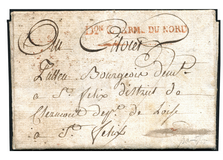 D.on ARM. DU NORD
Au Citoien
Bourgeois
a St felix district de
Clermont dep.t de Loise
a St felix